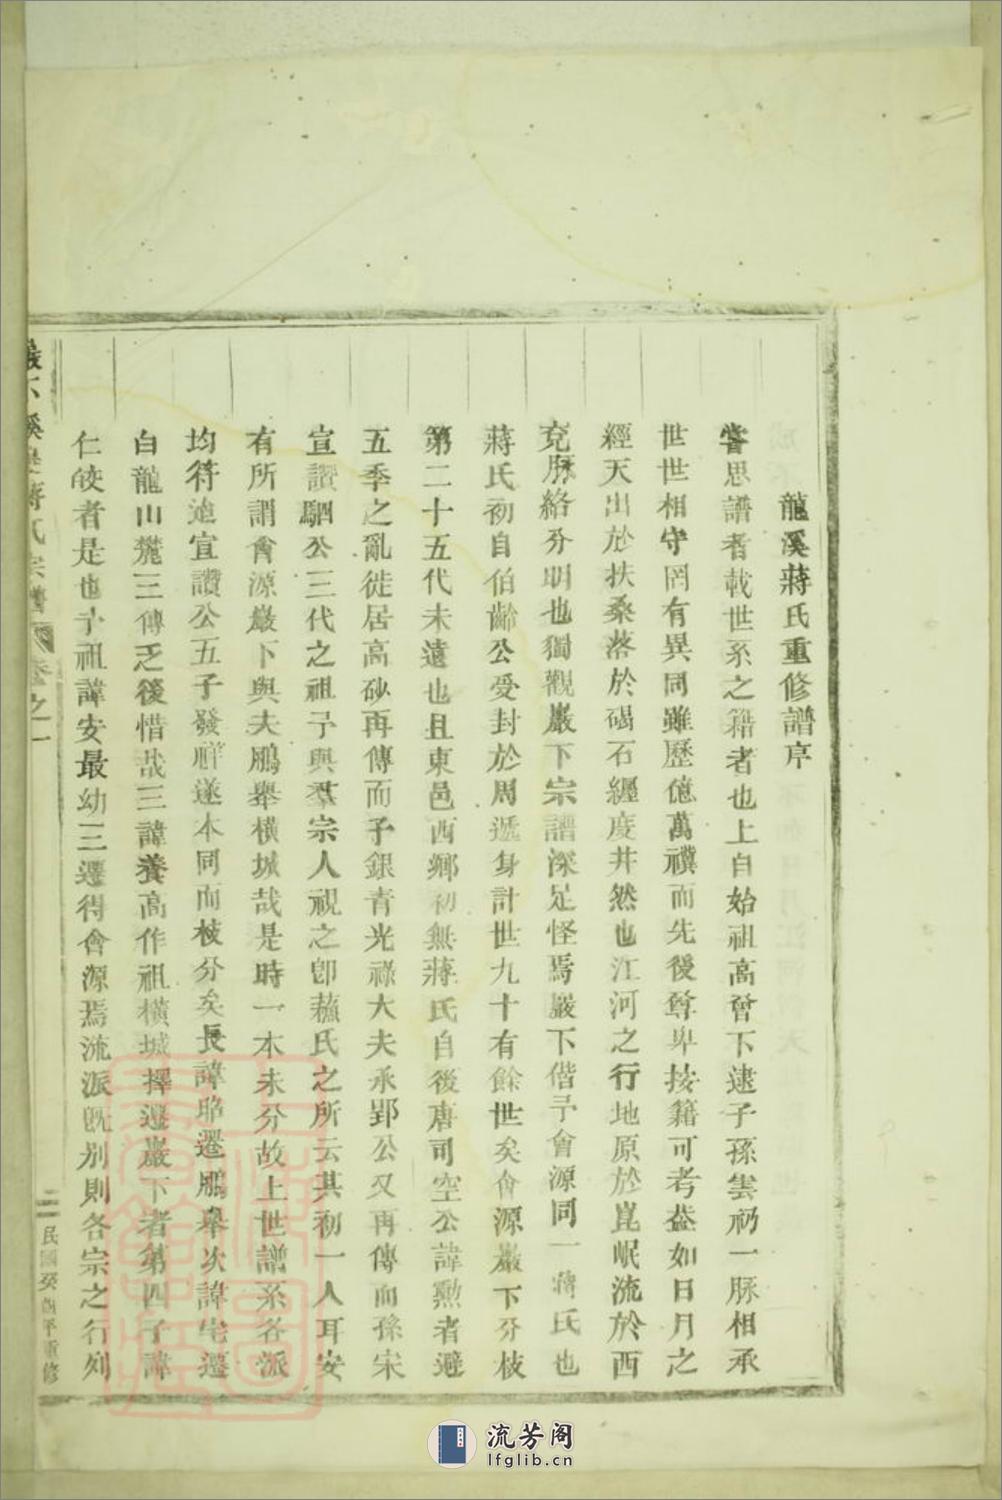 龍溪蔣氏重修譜序
嘗思譜者載世系之籍者也上自始祖高曾下逮子孫雲礽一脉相承
世世相守罔有異同雖歷億萬禩而先後尊卑按籍可考葢如日月之
經天出於扶桑落於碣石纒度井然也江河之行地原於崑岷流於西
兗脉絡分明也獨觀巖下宗譜深足怪焉巖下偕予會源同一蔣氏也
蔣氏初自伯齡公受封於周遞身計世九十有餘世矣會源巖下分枝
第二十五代未遠也且東邑西鄉初無蔣氏自後唐司空公諱勲者避
五季之亂徙居高砂再傳而子銀青光祿大夫承郢公又再傳而孫宋
宣讚駰公三代之祖予與羣宗人視之卽蘓氏之所云其初一人耳安
有所謂會源巖下與夫鵬舉橫城哉是時一本未分故上世譜系各派
均符迨宣讚公五子發祥遂本同而枝分矣長諱 遷鵬舉次諱宅遷
白龍山麓三傳乏後惜哉三諱養高作祖橫城擇遷巖下者第四子諱
仁 者是也予祖諱安最幼三遷得會源焉流派旣别則各宗之行列
巖下溪 蔣氏宗譜 卷之一
二 民國癸酉年重修
流芳阁
lfglib.cn